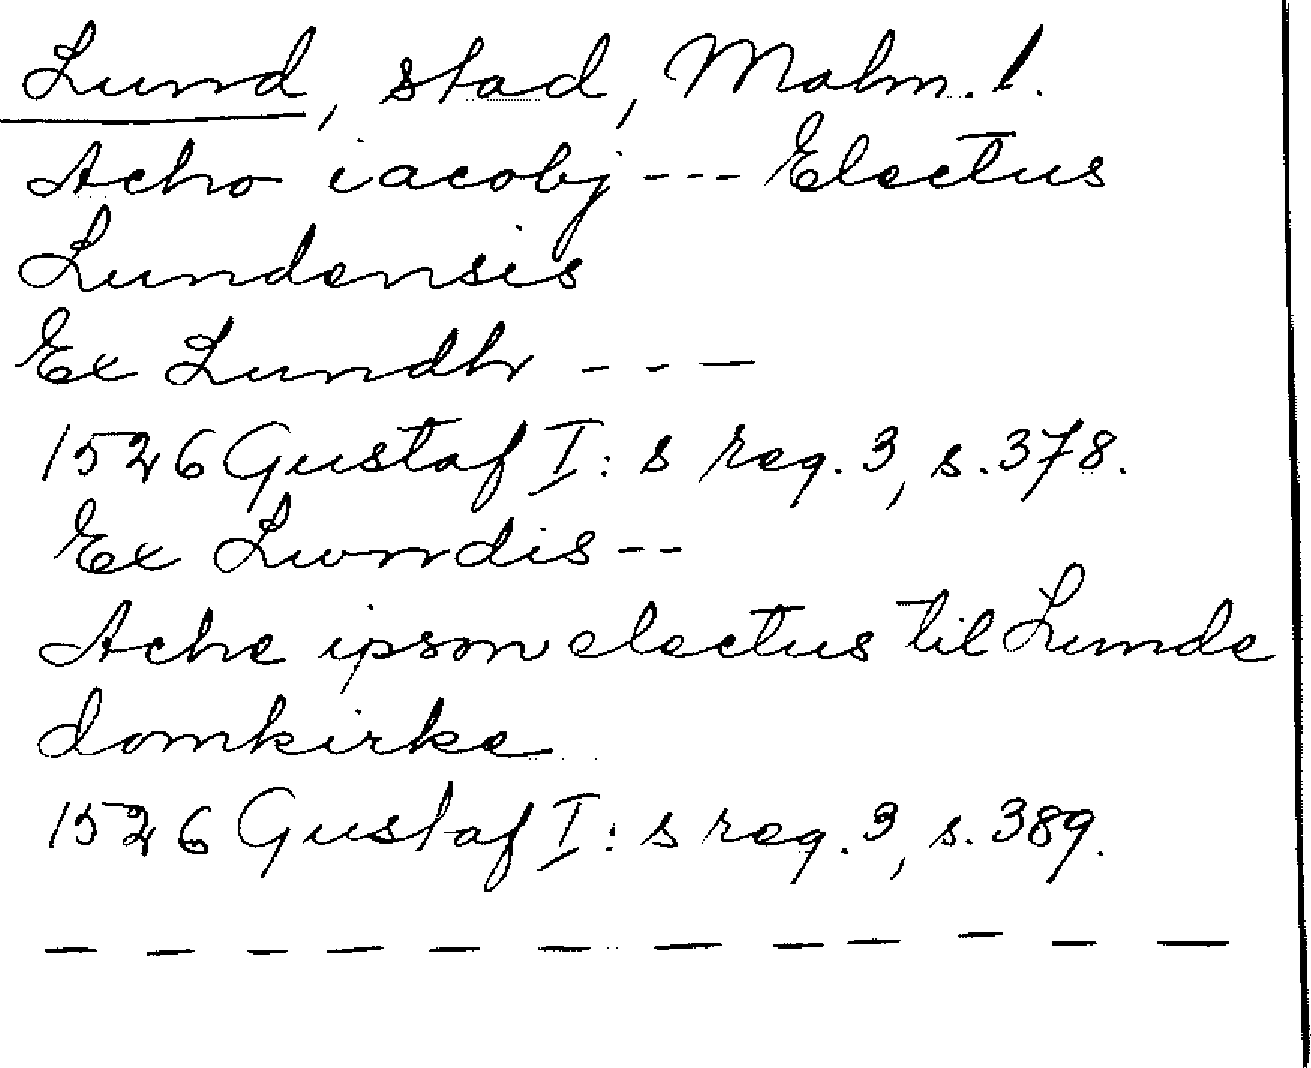 Lund, stad, Malm. l.
Acho iacobj --- Electus
Lundensis
Ex Lundh ---
1526 Gustaf I:s reg. 3, s. 378.
Ex Lwndis --
Ache ipson electus til Lunde
domkirke
1526 Gustaf I:s reg. 3, s. 389.